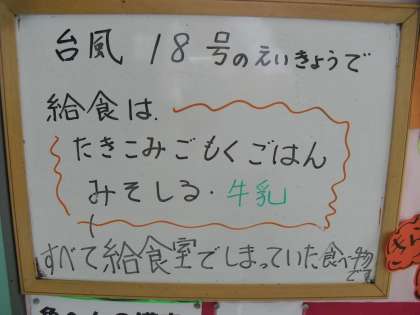 台風 18号のえいきょうで
給食は.
たきこみごもくごはん
みそしる・牛乳
すべて給食室でしまっていた食べ物
です